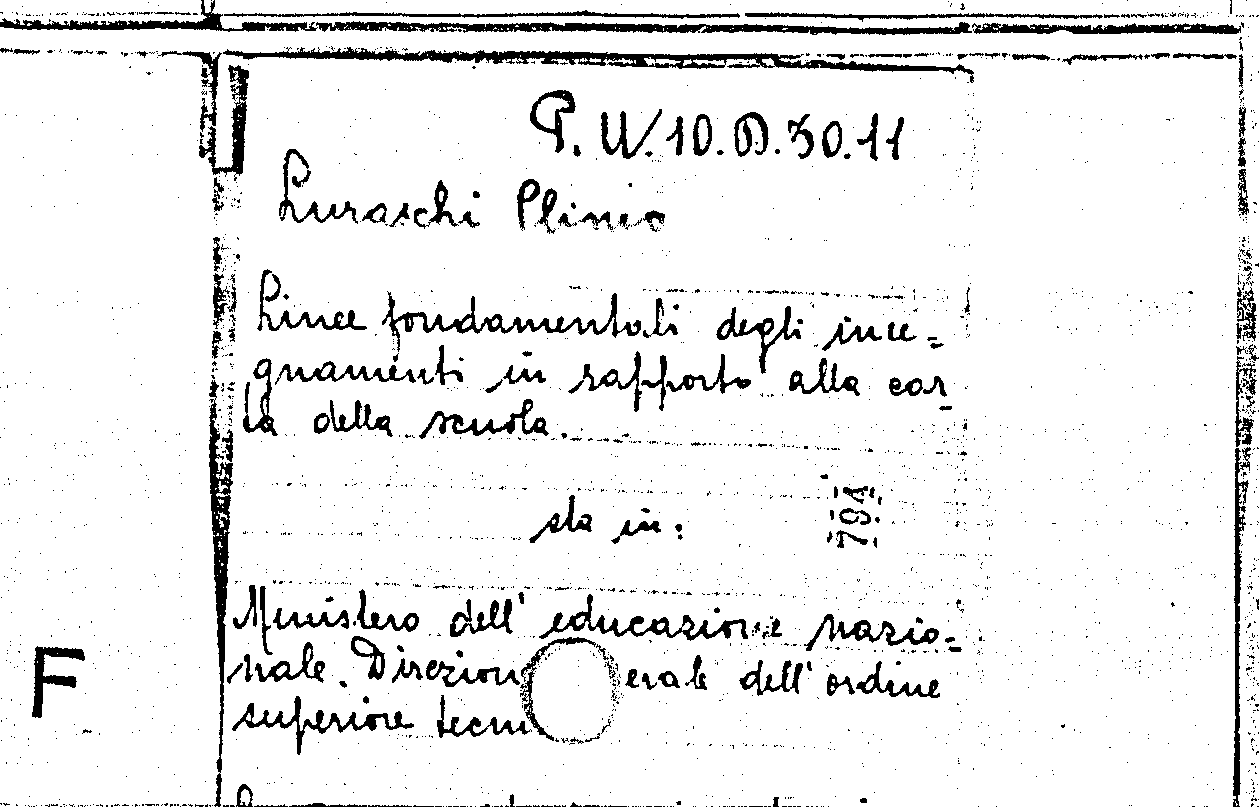 P. U. 10. D. 30. 11
Luraschi Plinio
Linee fondamentali degli inse=
gnamenti in rapporto alla car
ta della scuola.
sta in:
794
Ministero dell' educazione nazio-
nale. Direzion erale dell' ordine
F
superiore tecni